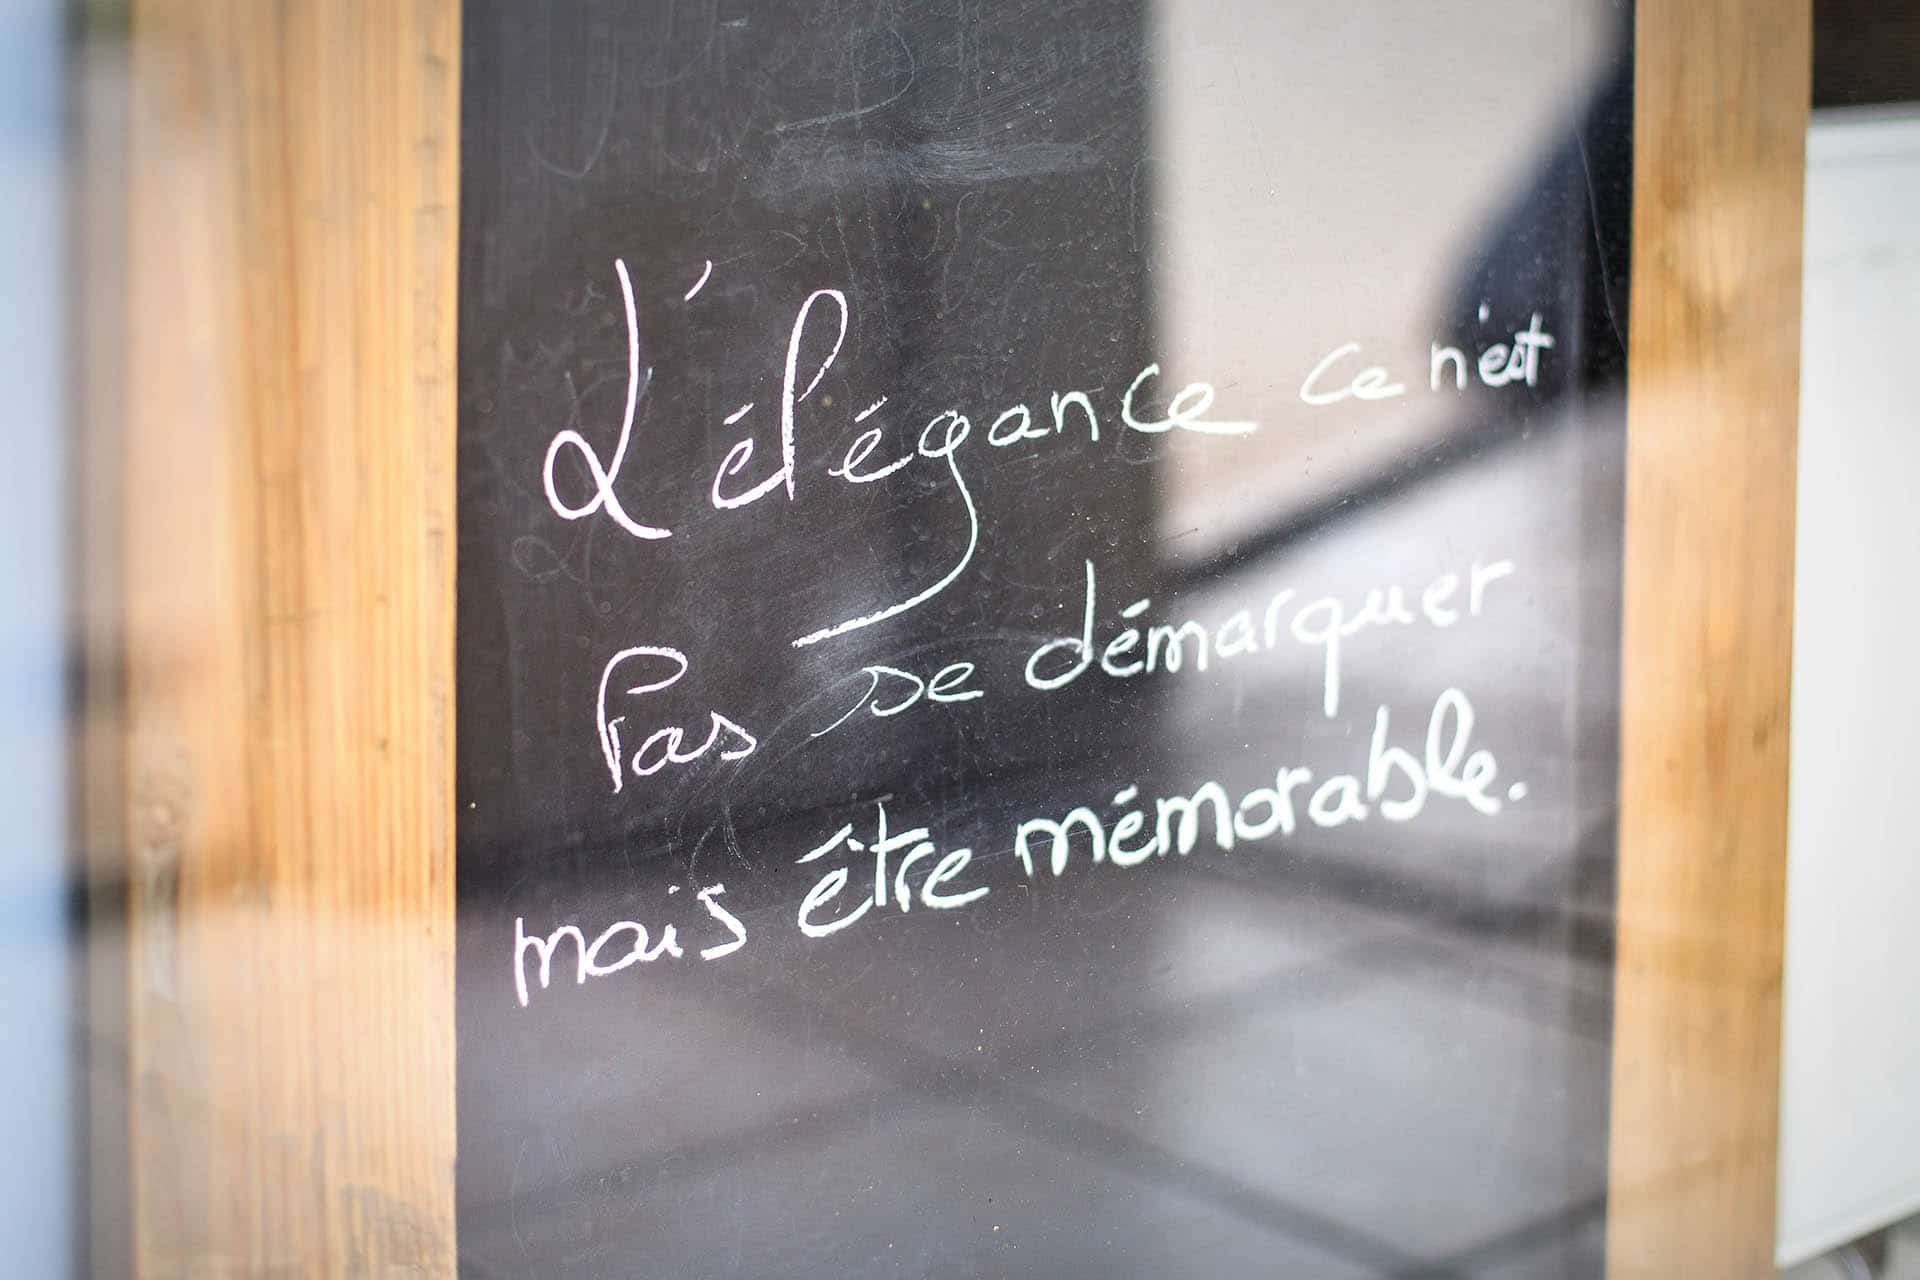 L'élégance ce n'est
Pas se démarquer
mais être mémorable.